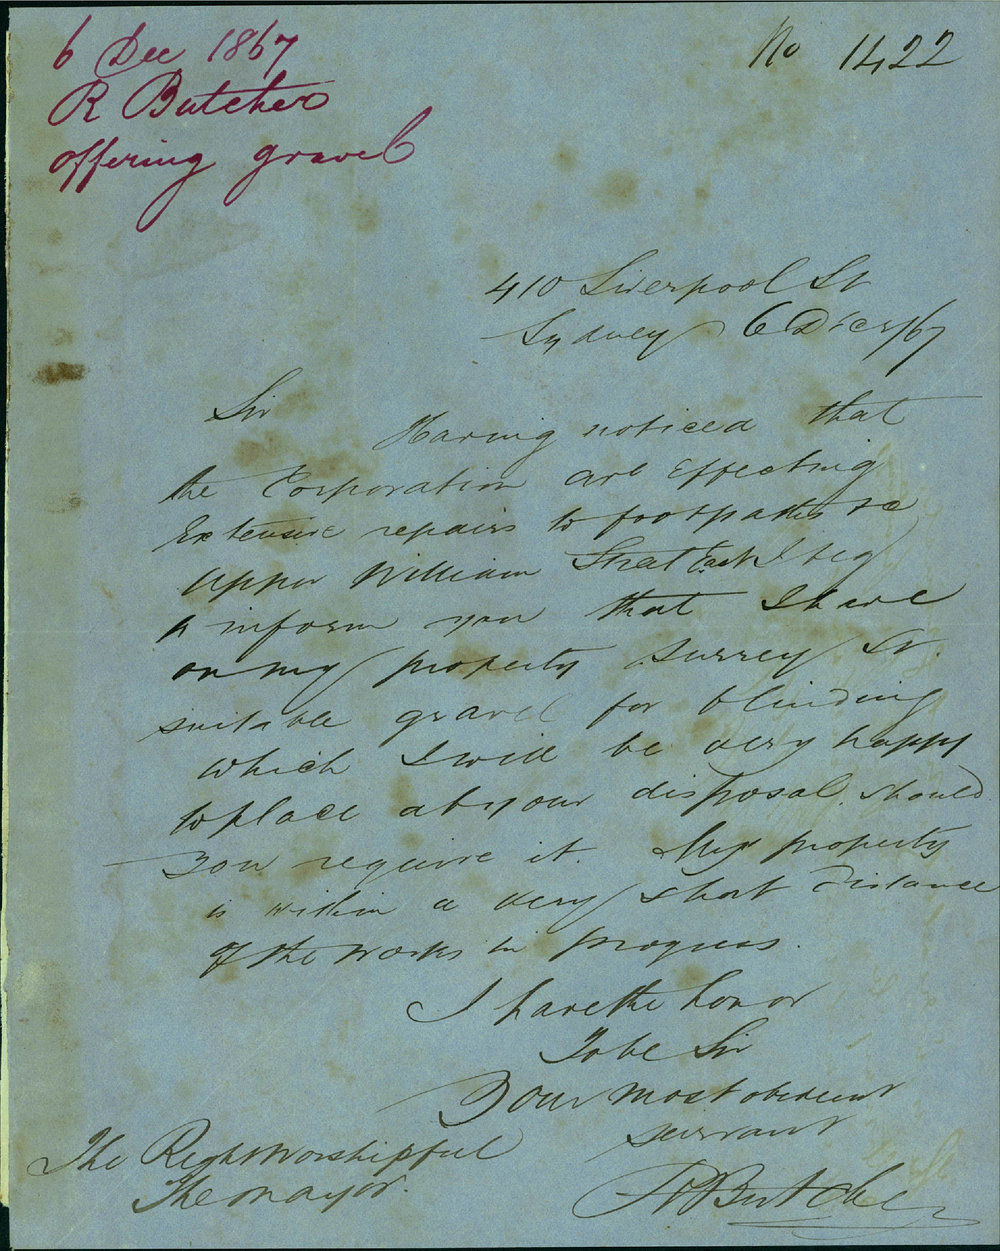 6 Dec 1867
R Butcher
offering gravel
No 1422
410 Liverpool St
Sydney 6 Decr /67
Sir
Having noticed that
the Corporation are Effecting
Extensive repairs to footpaths &c
Upper William Street East I beg
to inform you that I have
on my property Surrey St.
suitable gravel for blinding
which I will be very happy
to place at your disposal should
you require it. My property
is within a very short distance
of the works in progress.
I have the honor
To be Sir
Your most obedient
servant
R Butcher
The Right Worshipful
The Mayor.